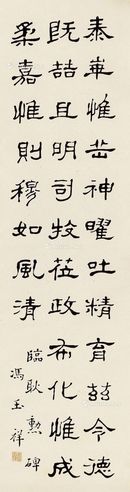 泰華惟岳神曜吐精育茲令德
既喆且明司牧莅政布化惟成
柔嘉惟則穆如風清
臨耿勳碑
馮玉祥